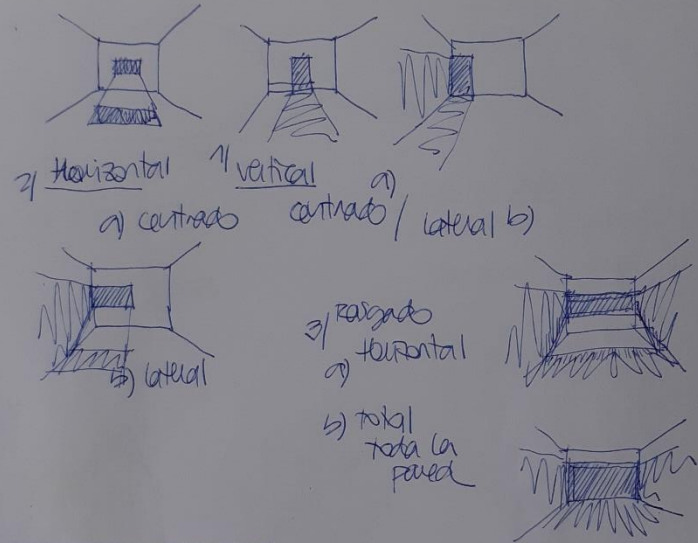 2) Horizontal
a) centrado
1) vertical
a) centrado / lateral b)
b) lateral
3) Rasgado
a) Horizontal
b) total
toda la
pared